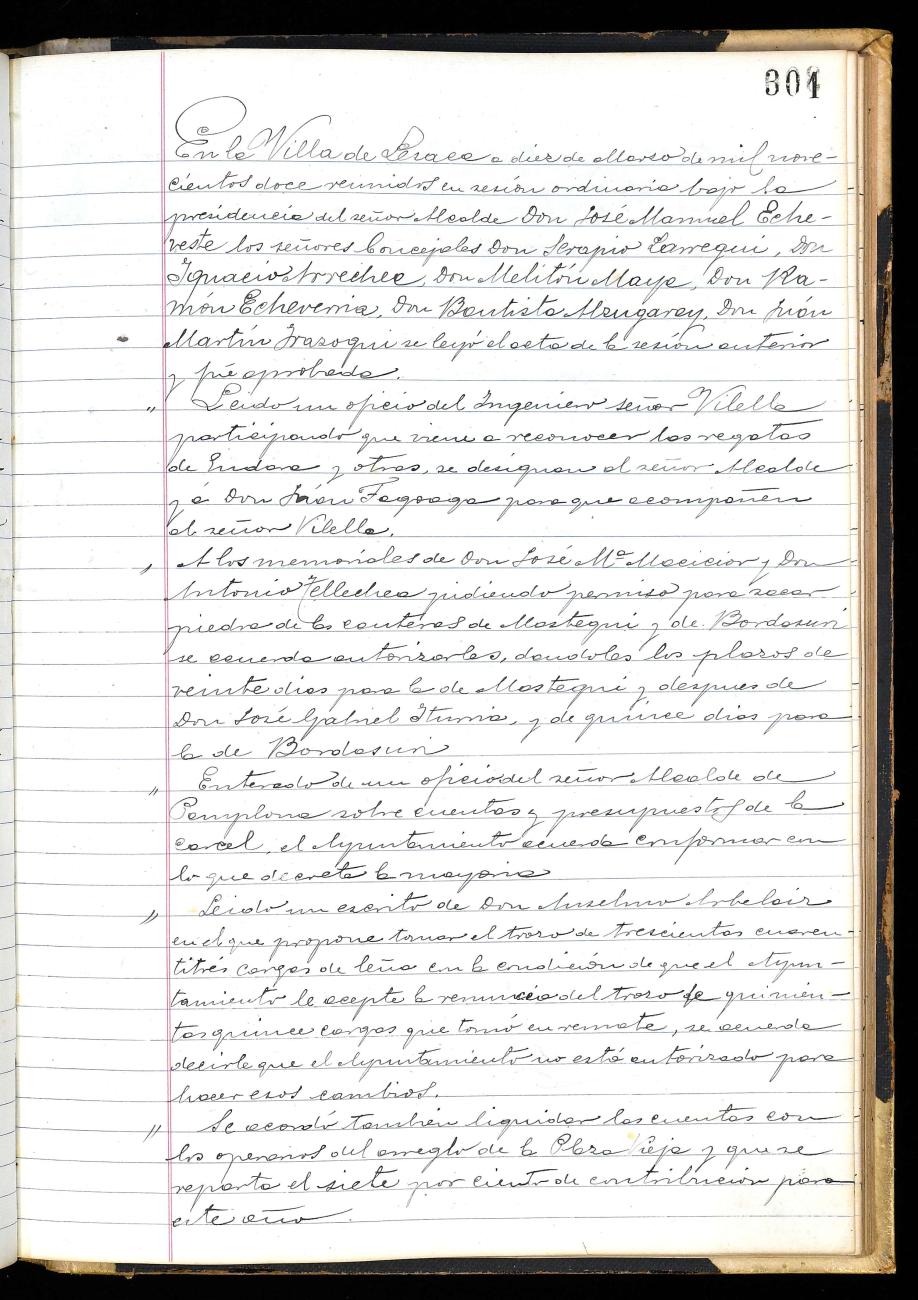 301
En la Villa de Lesaca a diez de Marzo de mil nove-
cientos doce reunidos en sesión ordinaria bajo la
presidencia del señor Alcalde Don José Manuel Eche-
veste los señores Concejales Don Serapio Larregui, Don
Ignacio Arrechea, Don Melitón Maya, Don Ra-
món Echeverria, Don Bautista Alzugaray, Don Juán
Martín Irazoqui se leyó el acta de la sesión anterior
y fué aprobada.
" Leido un oficio del Ingeniero señor Vilella
participando que viene a reconocer las regatas
de Endara y otras, se designan al señor Alcalde
y á Don Juán Fagoaga para que acompañen
al señor Vilella.
" A los memoriales de Don José Mª Macicior y Don
Antonio Tellechea pidiendo permiso para sacar
piedra de las canteras de Mastegui y de Bordasuri
se acuerda autorizarles, dandoles los plazos de
veinte dias para la de Mastegui y despues de
Don José Gabriel Iturria, y de quince dias para
la de Bordasuri
" Enterado de un oficio del señor Alcalde de
Pamplona sobre cuentas y presupuestos de la
carcel, el Ayuntamiento acuerda conformar con
lo que decreta la mayoria
" Leido un escrito de Don Anselmo Arbelaiz
en el que propone tomar el trozo de trescientas cuaren-
titrés cargas de leña con la condición de que el Ayun-
tamiento le acepte la renuncia del trozo de quinien-
tas quince cargas que tomó en remate, se acuerda
decirle que el Ayuntamiento no está autorizado para
hacer esos cambios.
" Se acordó también liquidar las cuentas con
los operarios del arreglo de la Plaza Vieja y que se
reparta el siete por ciento de contribución para
este año.